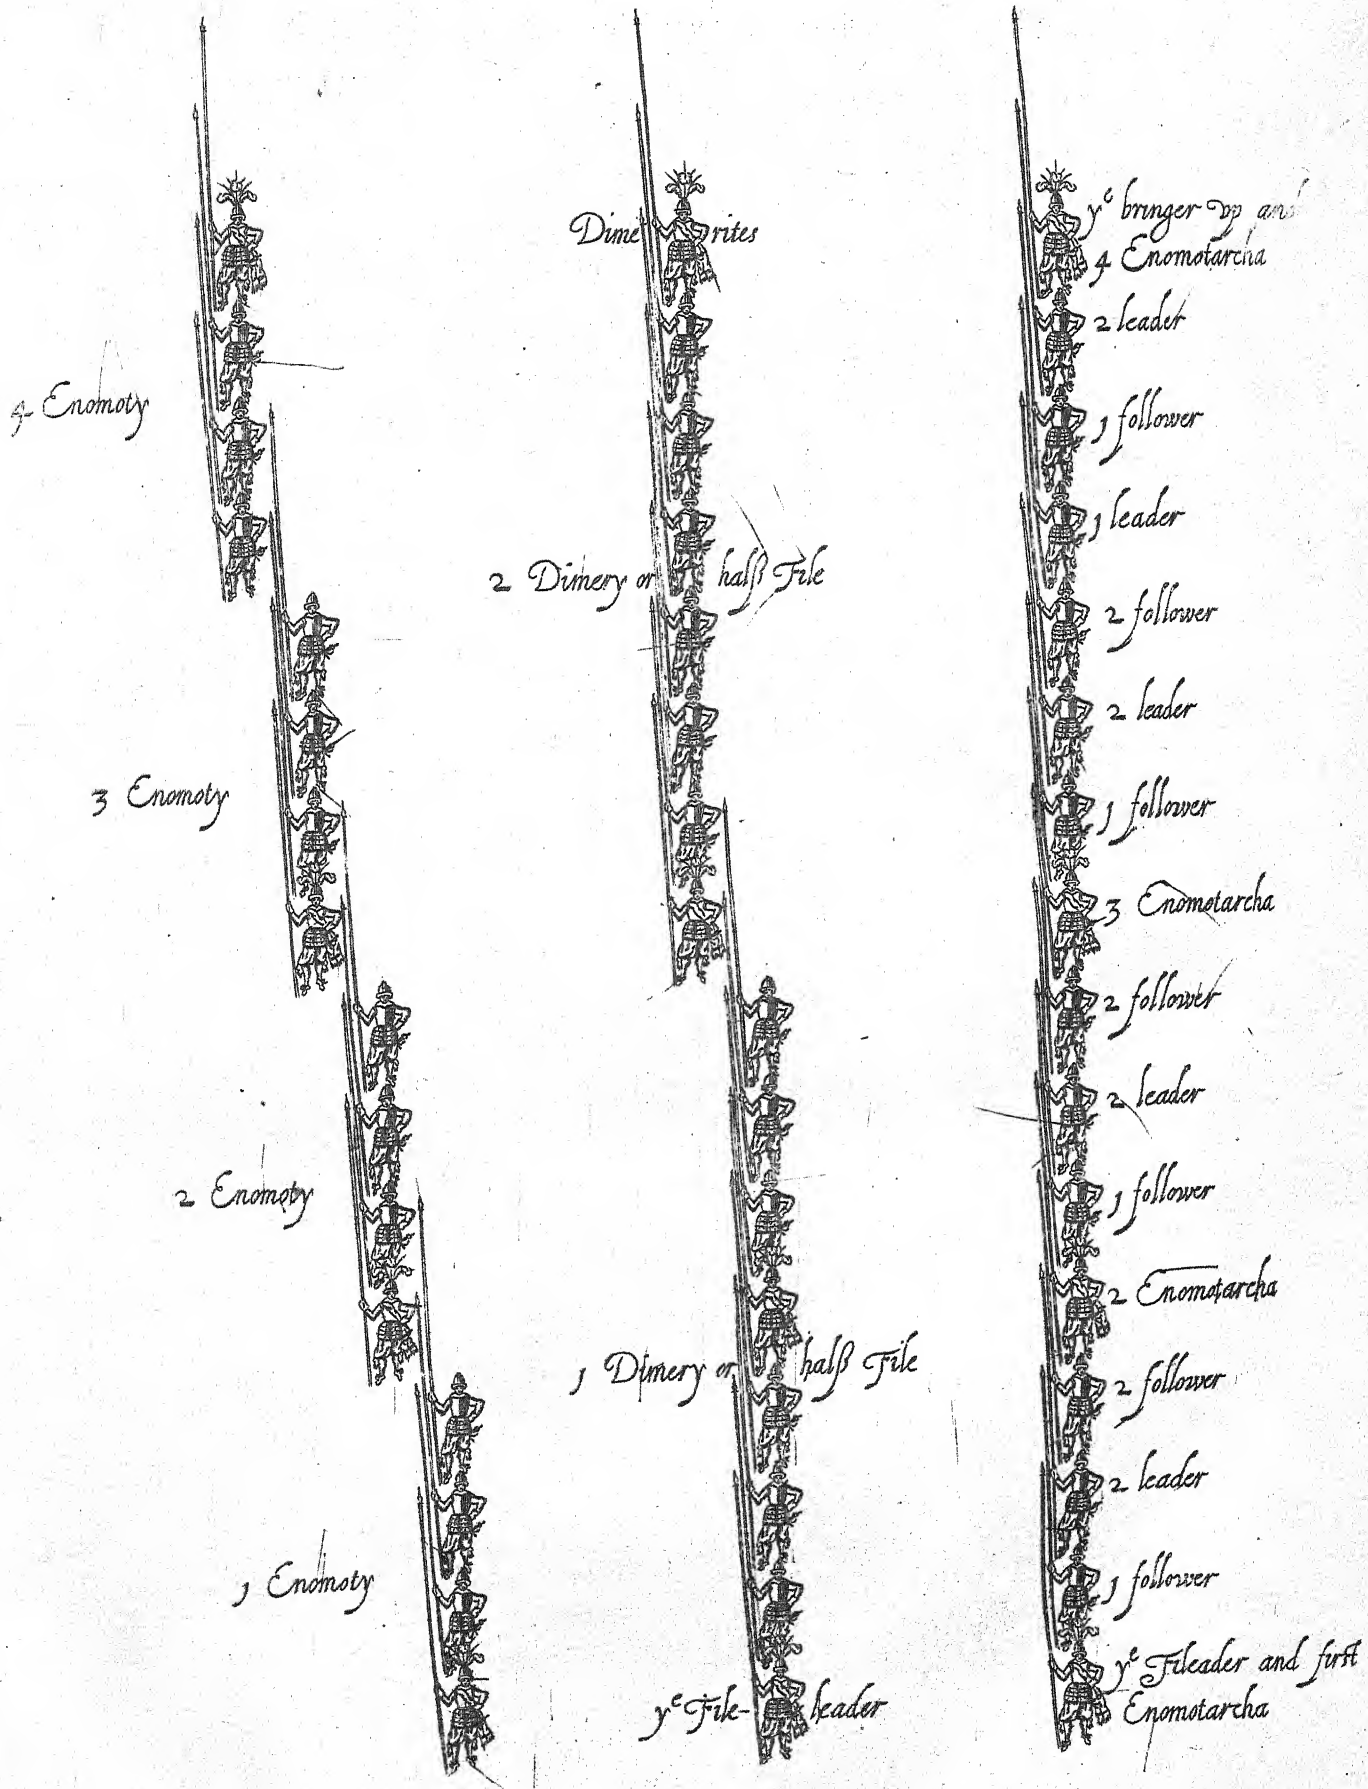 4 Enomoty
3 Enomoty
2 Enomoty
1 Enomoty
Dimerites
2 Dimery or halfß File
1 Dimery or halfß File
yᵉ File-leader
yᵉ bringer vp and
4 Enomotarcha
2 leader
1 follower
1 leader
2 follower
2 leader
1 follower
3 Enomotarcha
2 follower
2 leader
1 follower
2 Enomotarcha
2 follower
2 leader
1 follower
yᵉ Fileader and first
Enomotarcha